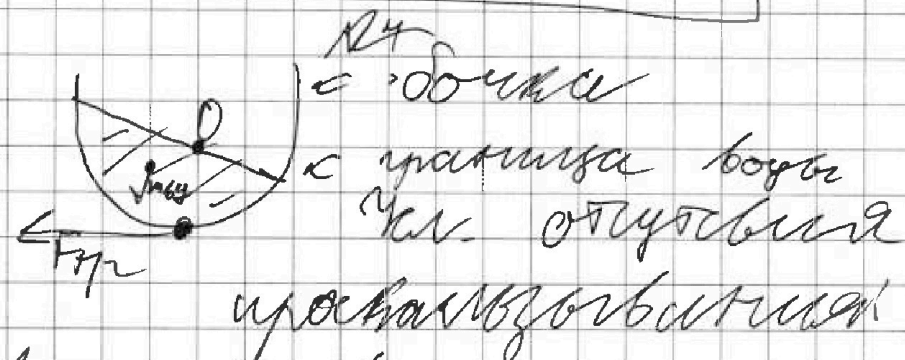 №4
< бочка
О
< граница воды
Усл. отсутсвия
Fтр
проскальзывания